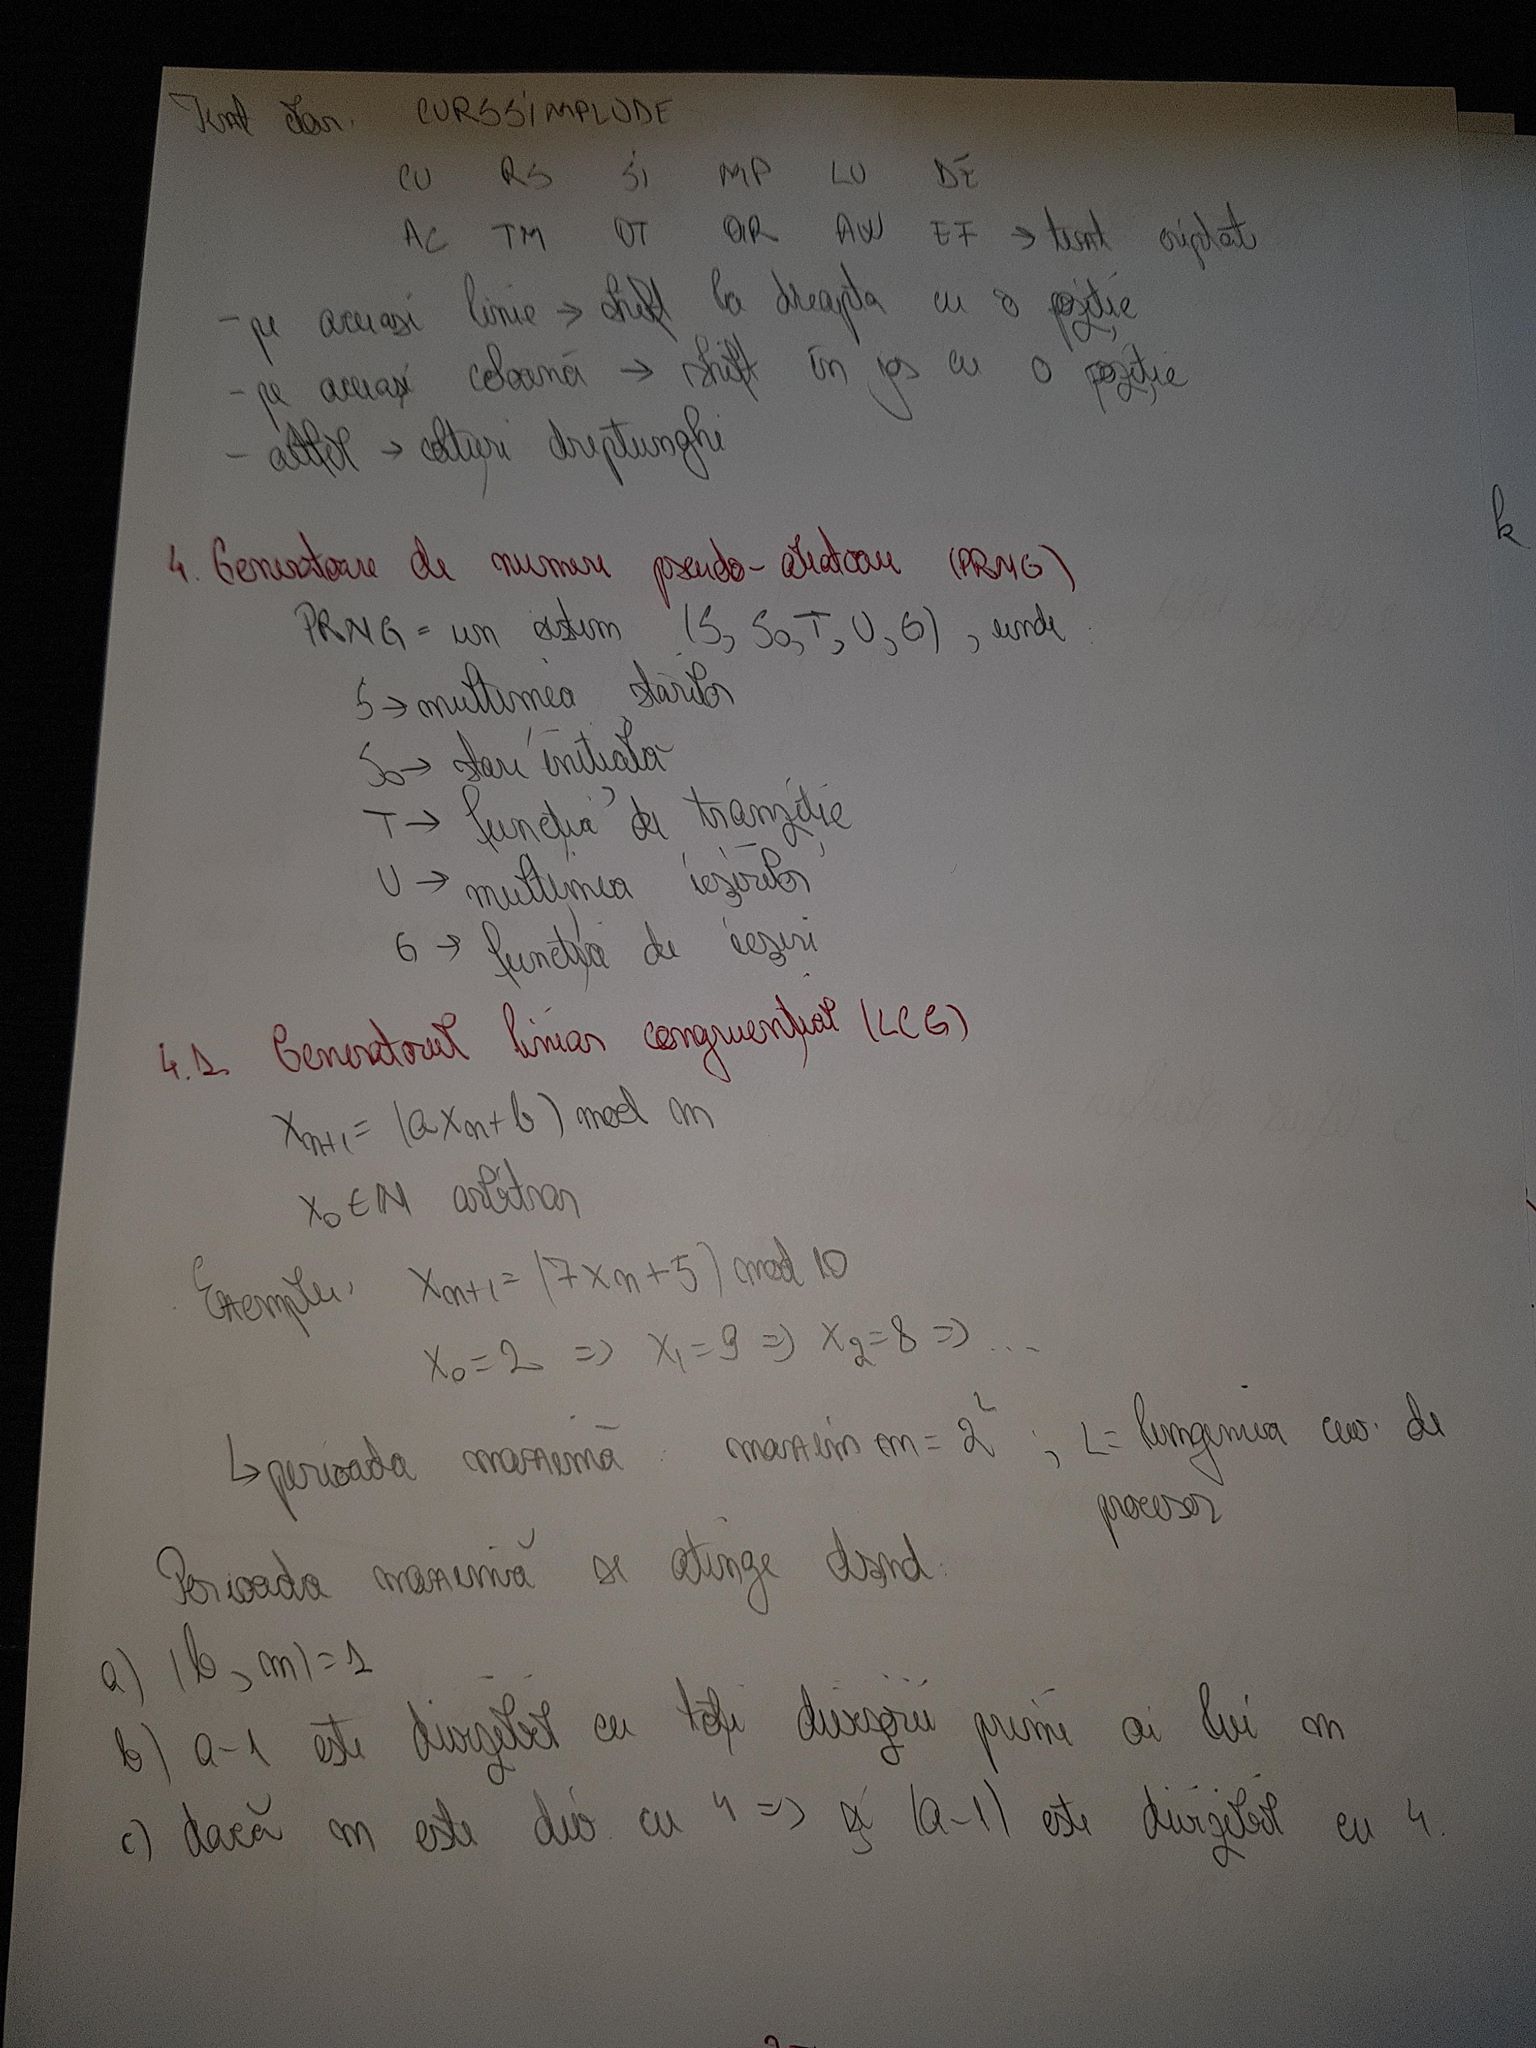 Text clar: CURSSIMPLUDE
CU RS SI MP LU DE
AC TM OT QR AW EF → text criptat
- pe aceeași linie → shift la dreapta cu o poziție
- pe aceeași coloană → shift în jos cu o poziție
- altfel → colțuri dreptunghi
k
4. Generatoare de numere pseudo-aleatoare (PRNG)
PRNG = un sistem (S, S₀, T, U, G), unde:
S → mulțimea stărilor
S₀ → stare inițială
T → funcția de tranziție
U → mulțimea ieșirilor
G → funcția de ieșiri
4.1. Generatorul liniar congruențial (LCG)
xₙ₊₁ = (axₙ + b) mod m
x₀ ∈ N arbitrar
Exemplu: xₙ₊₁ = (7xₙ + 5) mod 10
x₀ = 2 => x₁ = 9 => x₂ = 8 => ...
↳ perioada maximă: maxim m = 2ᴸ ; L = lungimea cuv. de
procesor
Perioada maximă se atinge când:
a) (b, m) = 1
b) a-1 este divizibil cu toți divizorii primi ai lui m
c) dacă m este div. cu 4 => și (a-1) este divizibil cu 4.